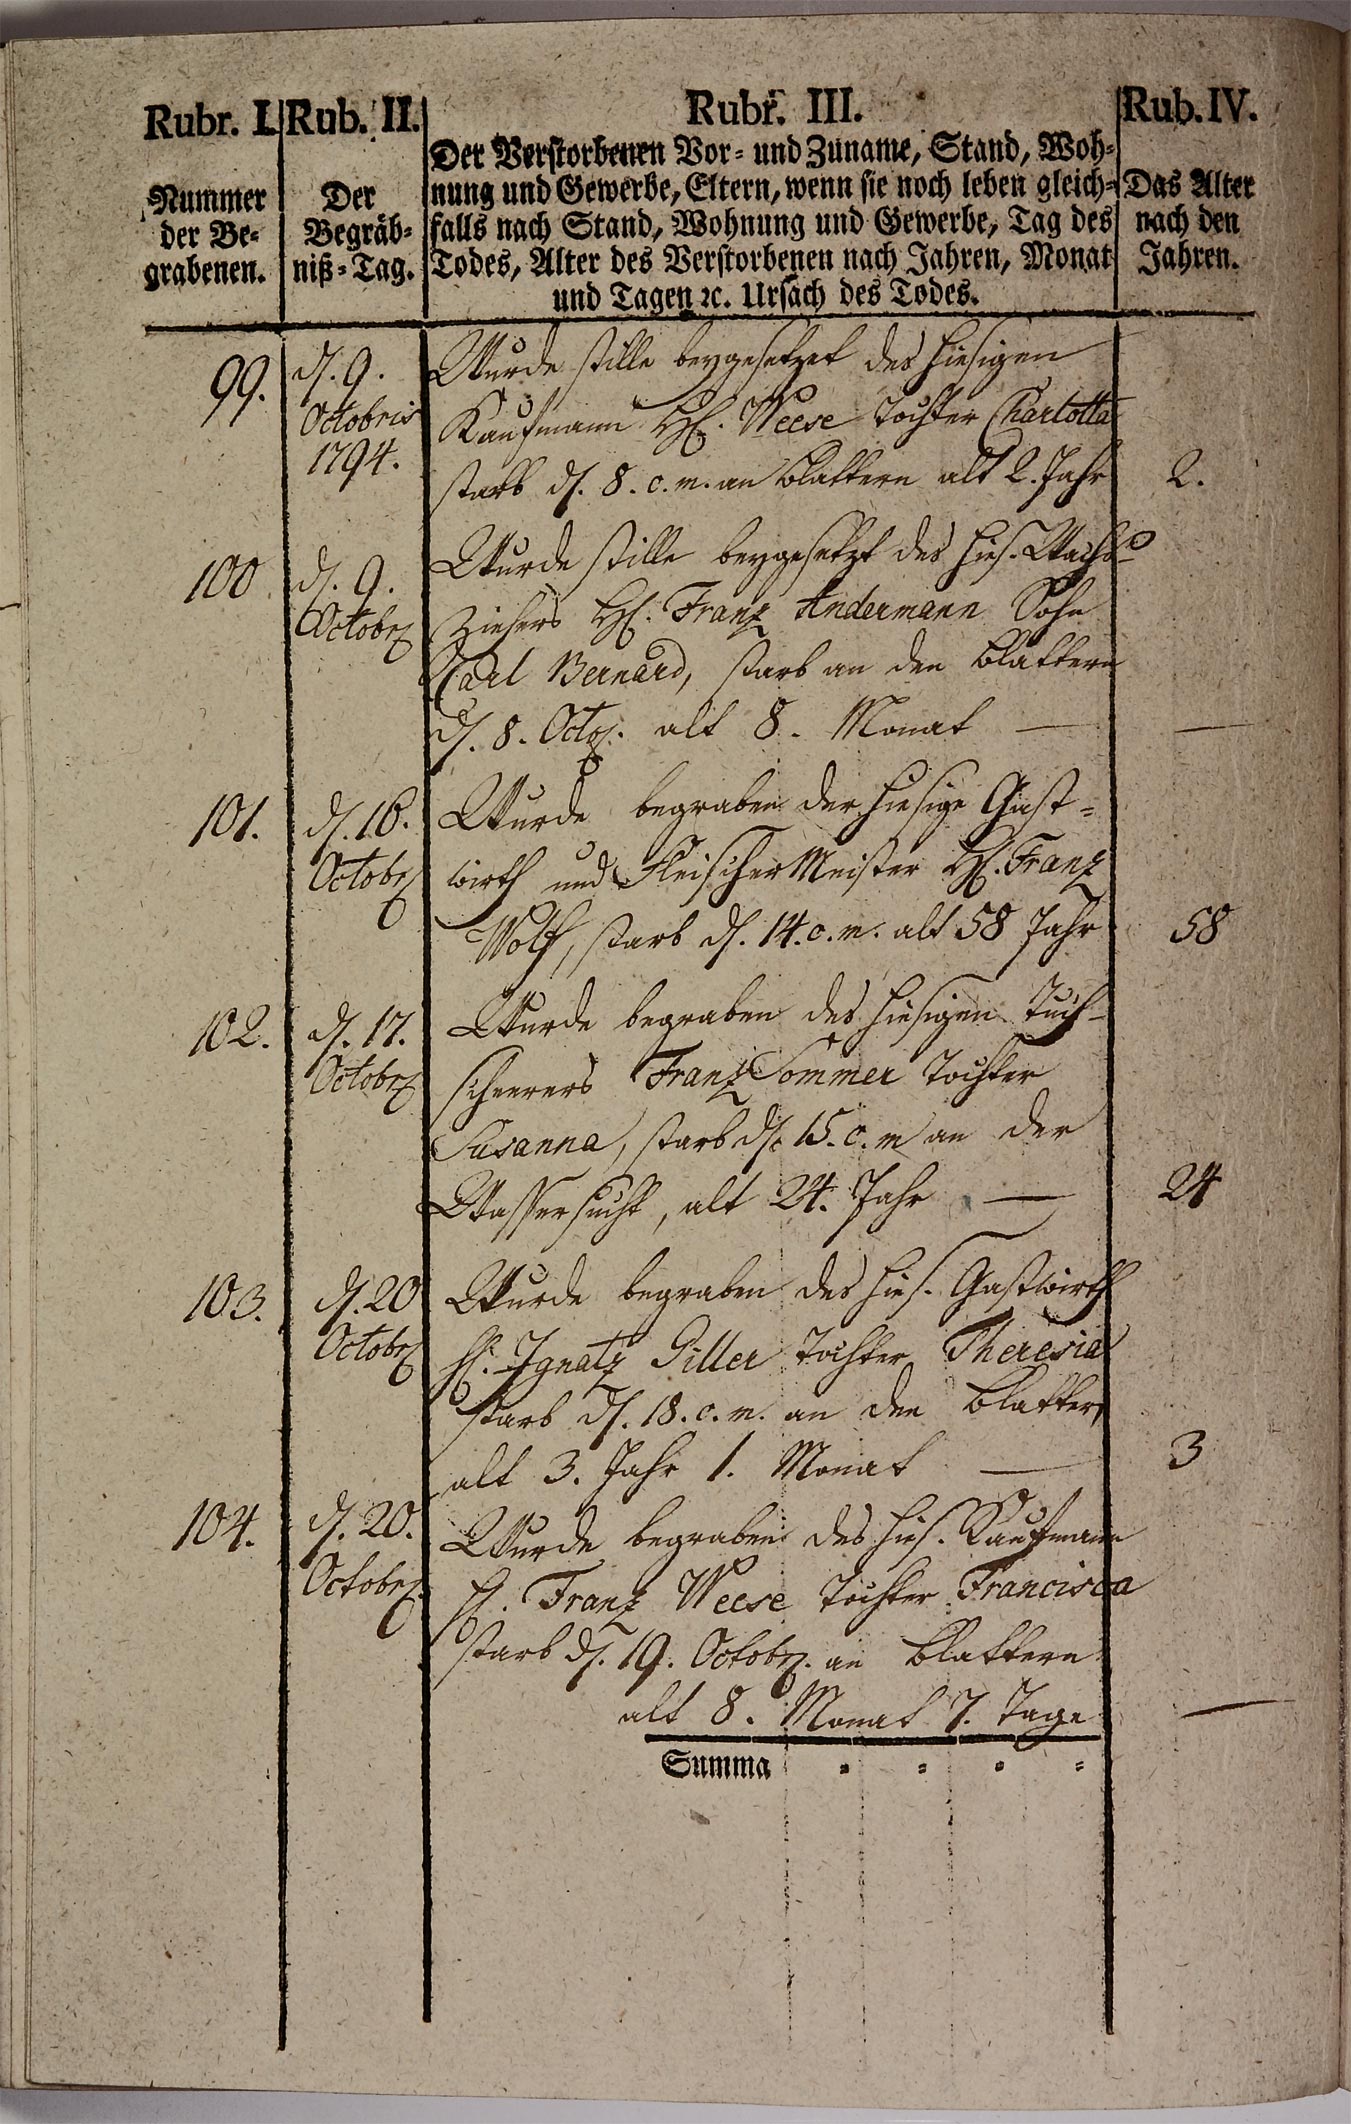 Rubr. I. Rub. II. Rubr. III. Rub. IV.
Nummer der Be-grabenen.
Der Begräb-niß-Tag.
Der Verstorbenen Vor- und Zuname, Stand, Woh-
nung und Gewerbe, Eltern, wenn sie noch leben gleich-
falls nach Stand, Wohnung und Gewerbe, Tag des
Todes, Alter des Verstorbenen nach Jahren, Monat
und Tagen ꝛc. Ursach des Todes.
Das Alter nach den Jahren.
99. d. 9. Wurde stille beygesetzet des hiesigen
Octobris Kaufmann H. Weese Tochter Charlotta
1794. starb d. 8. c. m. an Blattern alt 2. Jahr 2.
100 d. 9. Wurde stille beygesetzt des hies. Wachs-
Octobr. ziehers H. Franz Andermann Sohn
Carl Bernard, starb an den Blattern
d. 8. Octo. alt 8. Monat — —
101. d. 16. Wurde begraben der hiesige Gast-
Octobr. wirth und Fleischer Meister H. Franz
Wolf, starb d. 14. c. m. alt 58 Jahr 58
102. d. 17. Wurde begraben des hiesigen Tuch-
Octobr. scheerers Franz Sommer Tochter
Susanna, starb d. 15. c. m an der
Wassersucht, alt 24. Jahr — 24
103. d. 20 Wurde begraben des hies. Gastwirth
Octobr. H. Ignatz Giller Tochter Theresia
starb d. 18. c. m. an den Blattern
alt 3. Jahr 1. Monat — 3
104. d. 20. Wurde begraben des hies. Kaufmann
Octobr. H. Franz Weese Tochter Francisca
starb d. 19. Octobr. an Blattern
alt 8. Monat 7. Tage —
Summa